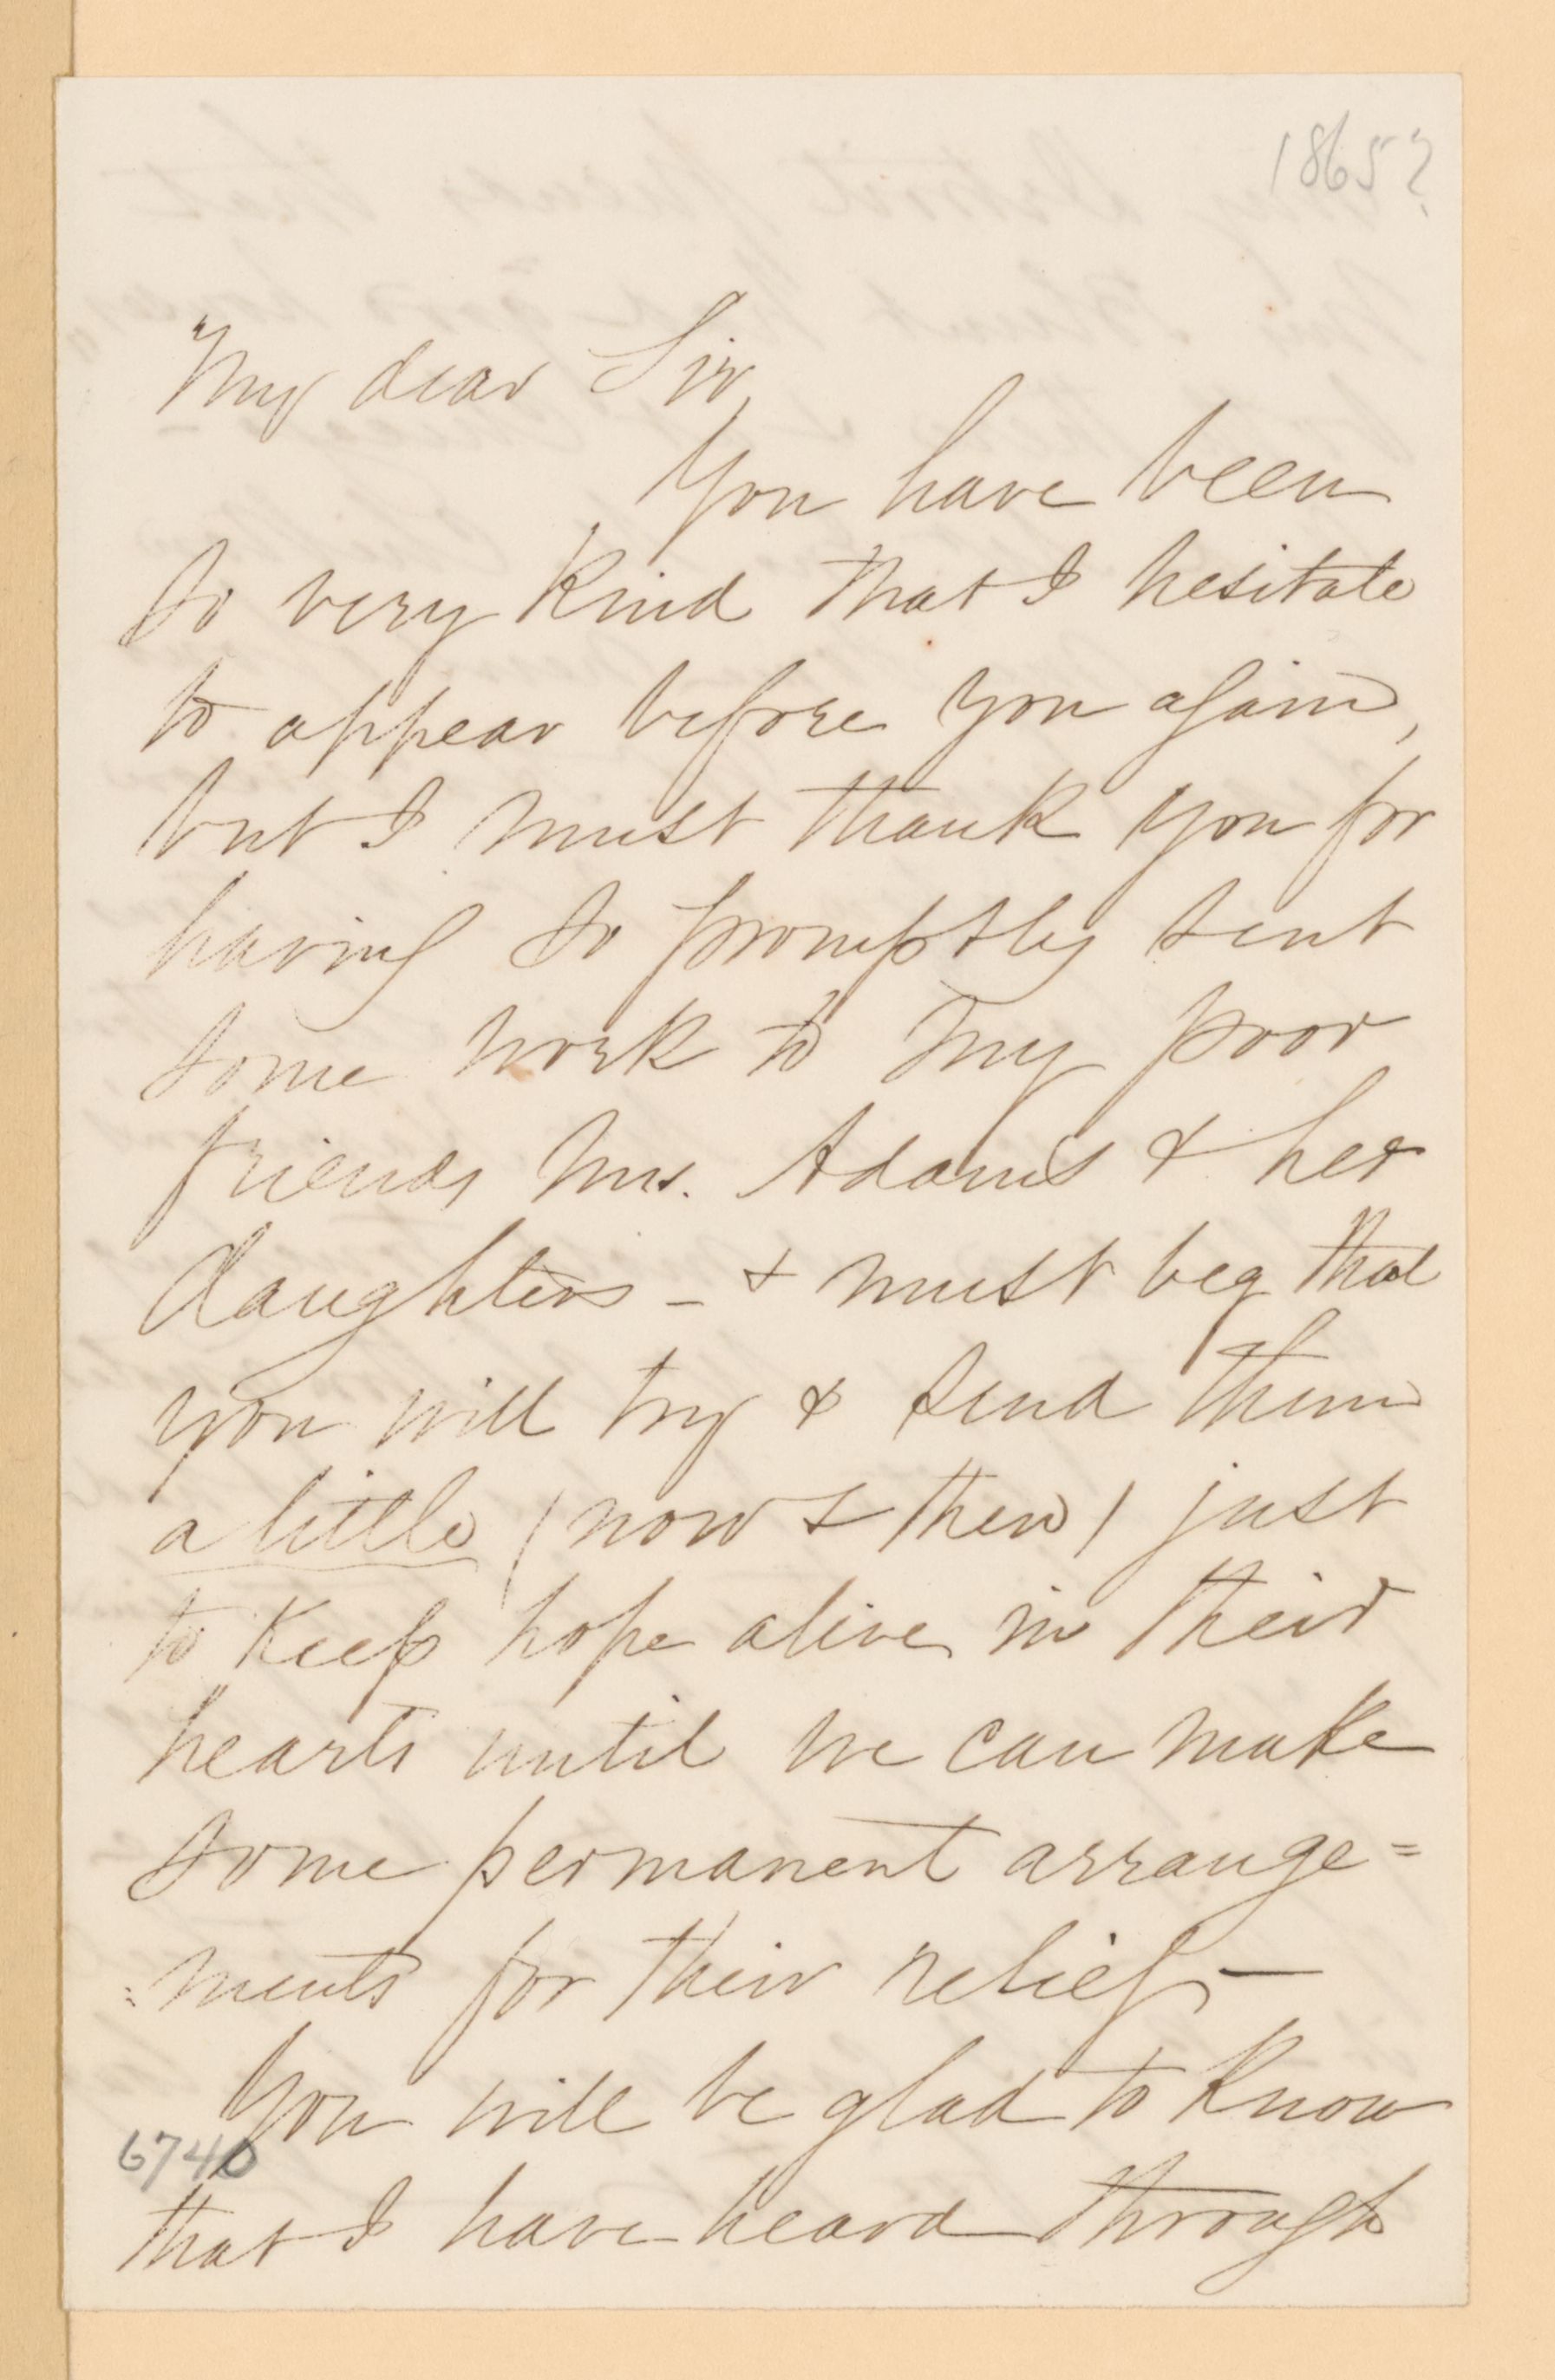 1865?
My dear Sir,
You have been
so very kind that I hesitate
to appear before you again,
but I must thank you for
having so promptly sent
some work to my poor
friends Mrs. Adams & her
daughters - & must beg that
you will try & send them
a little (now & then) just
to keep hope alive in their
hearts until we can make
some permanent arrange=
=ments for their relief -
You will be glad to know
6740
that I have heard through